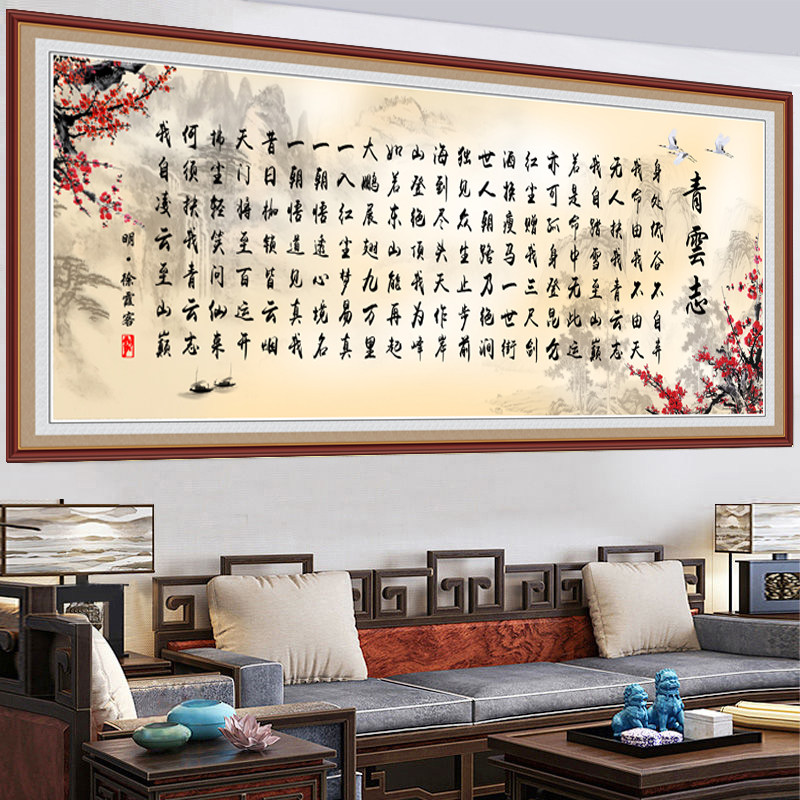 青雲志
身处低谷不自弃
我命由我不由天
无人扶我青云志
我自踏雪至山巅
若是命中无此运
亦可孤身登昆仑
红尘赠我三尺剑
酒换瘦马一世街
世人朝路乃绝涧
独见众生止步前
海到尽头天作岸
山登绝顶我为峰
如若东山能再起
大鹏展翅九万里
一入红尘梦易真
一朝悟透心境名
一朝悟道见真我
昔日枷锁皆云烟
天门将至百运开
拂尘轻笑问仙来
何须扶我青云志
我自凌云至山巅
明·徐霞客